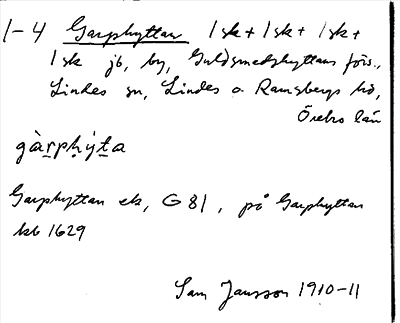 1-4 Garphyttan 1 sk + 1 sk + 1 sk +
1 sk jb, by, Guldsmedshyttans förs.,
Lindes sn, Lindes o Ramsbergs hd,
Örebro län
gàr̲pḥýt̲a
Garphyttan ek, G 81, på Garphyttan
kb 1629
Sam Jansson 1910-11